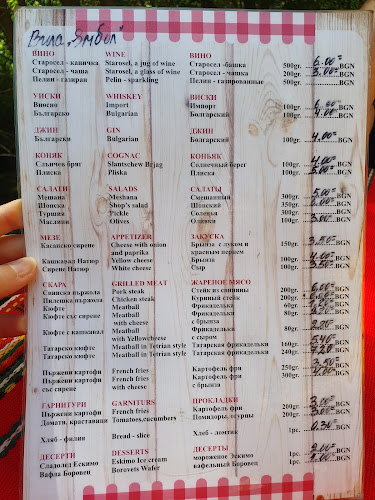 Вила „Ямбол"
ВИНО WINE ВИНО
Старосел - каничка Starosel, a jug of wine Старосел -башка 500gr. 6.00= BGN
Старосел - чаша Starosel, a glass of wine Старосел - чашка 200gr. 3.00= BGN
Пелин - газиран Pelin - sparkling Пелин - газированные 500gr. BGN
УИСКИ WHISKEY ВИСКИ
Вносно Import Импорт 100gr. 6.00 BGN
Българско Bulgarian Болгарский 100gr. 4.00= BGN
ДЖИН GIN ДЖИН
Български Bulgarian Болгарский 100gr. 4.00= BGN
КОНЯК COGNAC КОНЬЯК
Слънчев бряг Slantschew Brjag Солнечный берег 100gr. 4.00= BGN
Плиска Pliska Плиска 100gr. BGN
САЛАТИ SALADS САЛАТЫ
Мешана Meshana Смешанный 300gr. 5.00= BGN
Шопска Shop's salad Шопский 350gr. BGN
Туршия Pickle Соленья 300gr. BGN
Маслини Olives Оливки 100gr. 3.00= BGN
МЕЗЕ APPETIZER ЗАКУСКА
Касапско сирене Cheese with onion Брынза с луком и 150gr. 3.50= BGN
and paprika красным перцем
Кашкавал Натюр Yellow cheese Брынза 100gr. 4.00= BGN
Сирене Натюр White cheese Сыр 100gr. BGN
СКАРА GRILLED MEAT ЖАРЕНОЕ МЯСО
Свинска пържола Pork steak Стейк из свинины 200gr. 6.00= BGN
Пилешка пържола Chicken steak Куриный стейк 200gr. BGN
Кюфте Meatball Фрикаделька 60gr. BGN
Кюфте със сирене Meatball Фрикадельки 80gr. BGN
with cheese с брынза
Кюфте с кашкавал Meatball Фрикадельки 80gr. BGN
with Yellowcheese с сыром
Татарско кюфте Meatball in Tetrian style Татарская фрикадельки 160gr. 5.40= BGN
Татарско кюфте Meatball in Tetrian style Татарская фрикадельки 240gr. 7.20 BGN
Пържени картофи French fries Картофель фри 250gr. 3.50= BGN
Пържени картофи French fries Картофель фри 300gr. BGN
със сирене with cheese с брынза
ГАРНИТУРИ GARNITURS ПРОКЛАДКИ
Пържени картофи French fries Картофель фри 200gr. BGN
Домати, краставици Tomatoes,cucumbers Помидоры, огурцы 200gr. BGN
Хляб - филия Bread - slice Хлеб - ломтик 1pc. 0.30= BGN
ДЕСЕРТИ DESSERTS ДЕСЕРТЫ
Сладолед Ескимо Eskimo Ice cream мороженое Эскимо 1pc. 2.00= BGN
Вафла Боровец Borovets Wafer вафельный Боровец 1pc. BGN